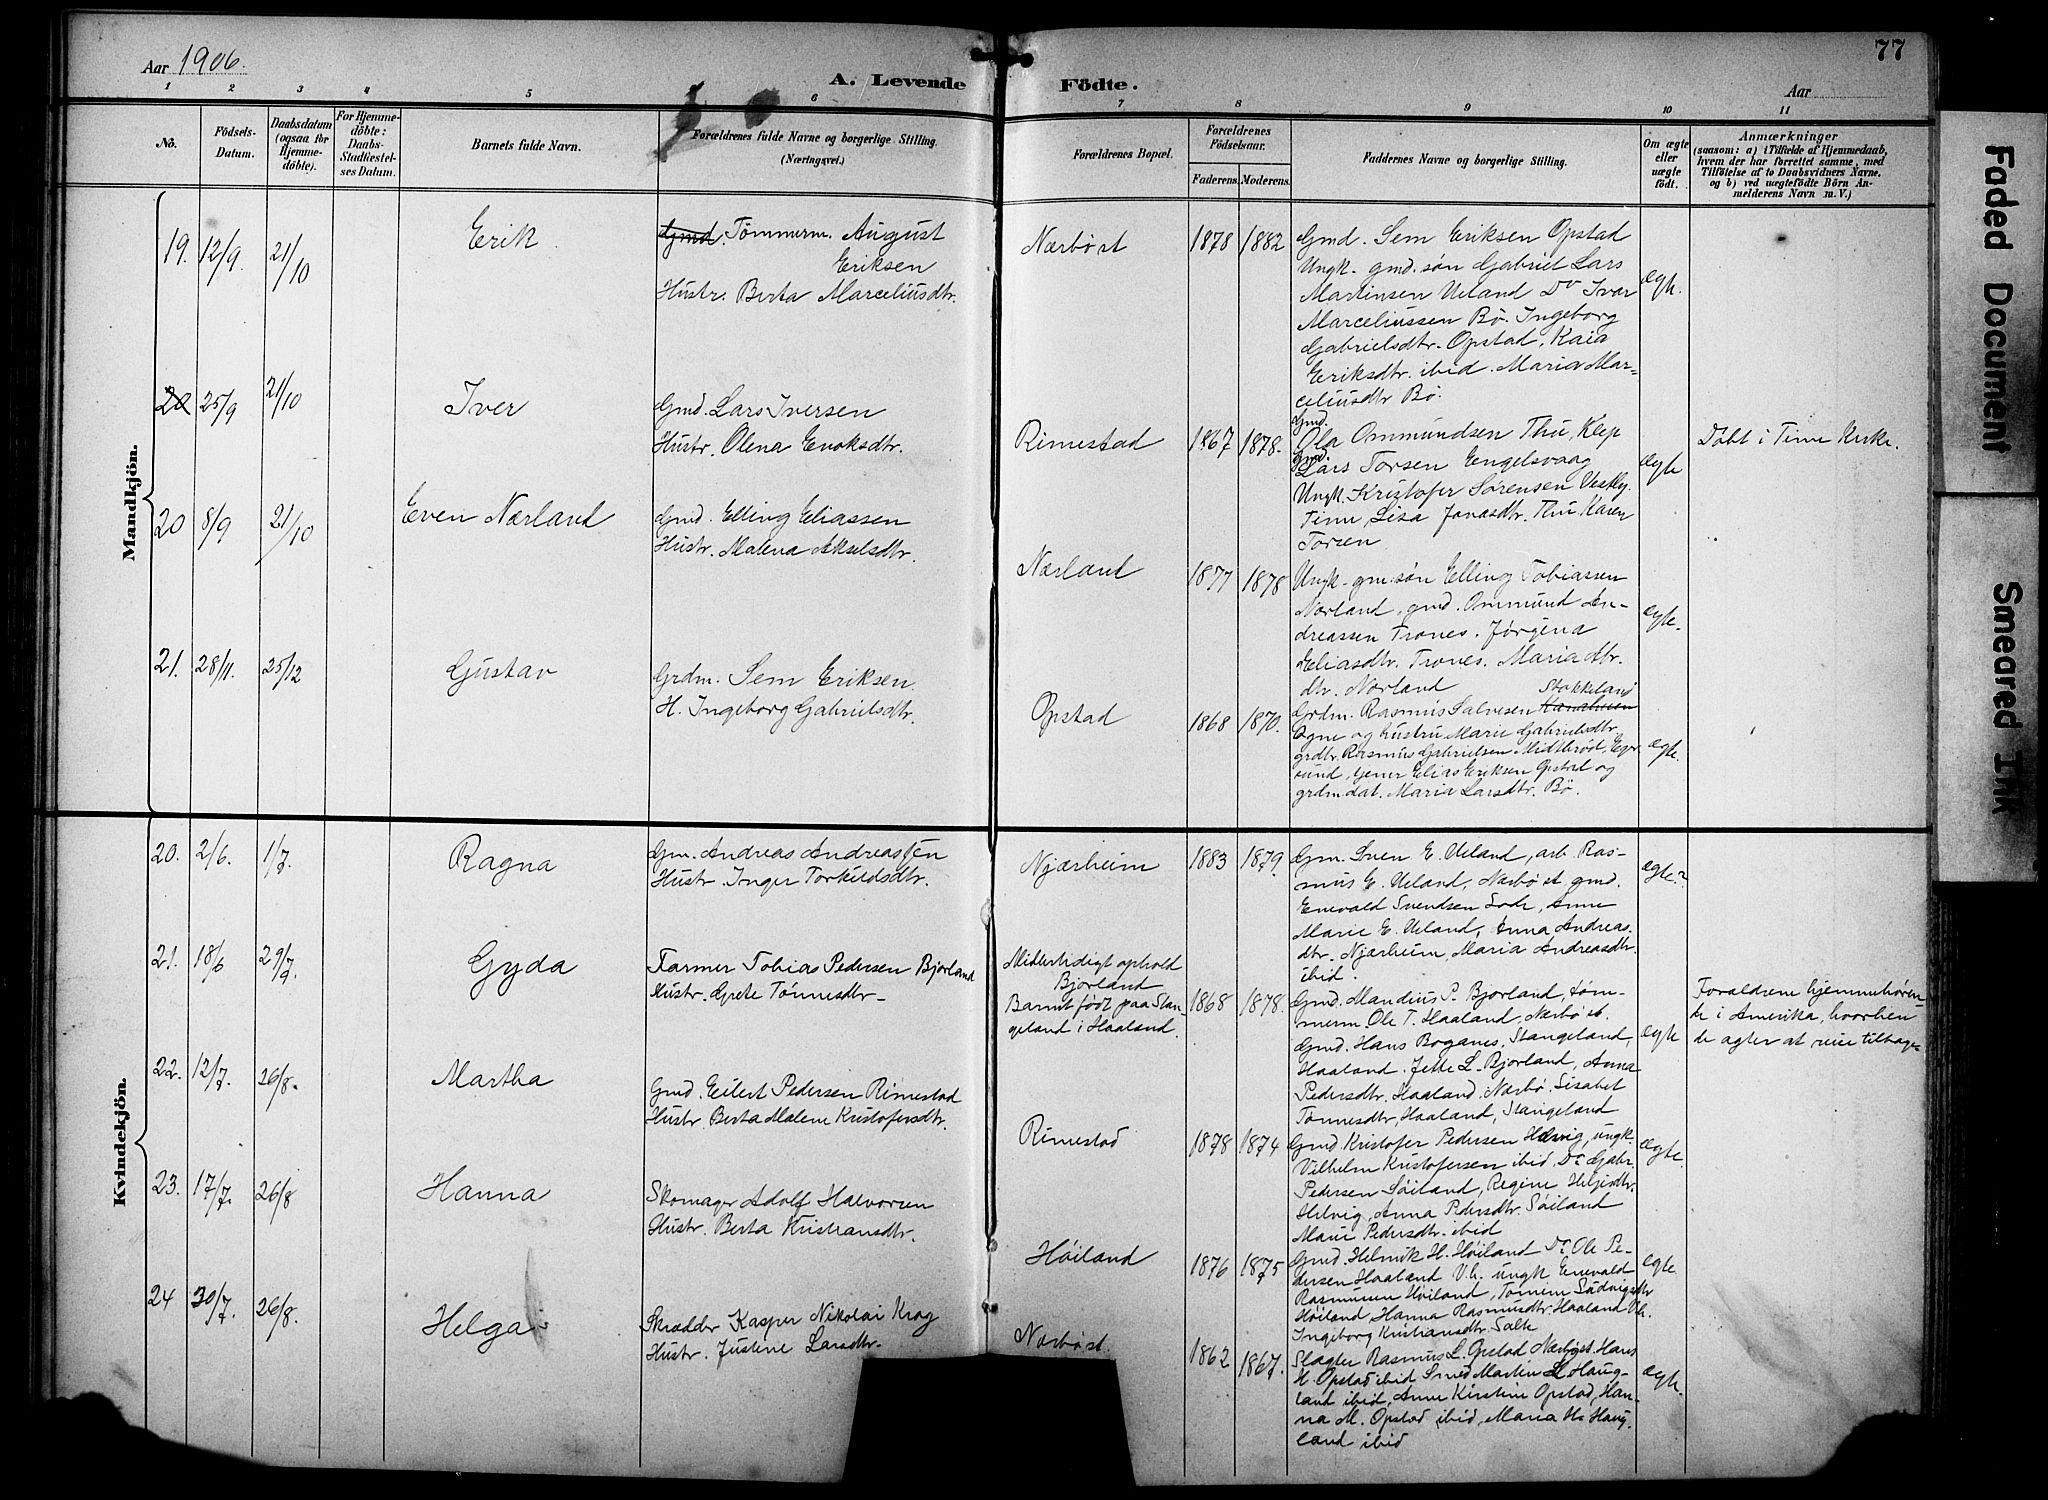 Aar 1906.
A. Levende Födte.
Aar
77
1 2 3 4 5 6 7 8 9 10 11
No.
Födsels-Datum.
Daabsdatum (ogsaa for Hjemmedöbte).
For Hjemmedöbte: Daabs-Stadfæstelses Datum.
Barnets fulde Navn.
Forældrenes fulde Navne og borgerlige Stilling. (Næringsvei.)
Forældrenes Bopæl.
Forældrenes Födselsaar.
Faderens. Moderens.
Faddernes Navne og borgerlige Stilling.
Om ægte eller uægte födt.
Anmærkninger
(saasom: a) i Tilfælde af Hjemmedaab,
hvem der har forrettet samme, med
Tilföielse af to Daabsvidners Navne,
og b) ved uægtefödte Börn An-
melderens Navn m. V.)
Mandkjön.
19. 12/9. 21/10 Erik
Gmd. Tømmerm. August
Eriksen
Hustr. Berta Marceliusdtr.
Nærbø st 1878 1882
Gmd. Sem Eriksen Opstad
Ungk. gmd. søn Gabriel Lars
Martinsen Ueland Do Ivar
Marceliussen Bø. Ingeborg
Gabrielsdtr. Opstad, Kaia
Eriksdtr. ibid. Maria Mar-
celiusdtr Bø.
ægte.
20 25/9 21/10 Iver
Gmd. Lars Iversen
Hustr. Olena Enoksdtr.
Rimestad 1867 1878.
Gmd.
Ola Ommundsen Thu, Klep
Gmd.
Lars Torsen Engelsvaag
Ungk. Kristofer Sørensen Vestly.
Time, Lisa Jonasdtr. Thu Karen
Torsen
ægte
Døbt i Time Kirke.
20 8/9 21/10 Even Nærland
Gmd. Elling Eliassen
Hustr. Malena Akselsdtr.
Nærland 1877 1878
Ungk. gm. søn Elling Tobiassen
Nærland, gmd. Ommund An-
dreassen Trones. Jørgina
Eliasdtr. Trones. Maria
dtr. Nærland
ægte.
21. 28/11. 25/12 Gustav
Grdm. Sem Eriksen
H. Ingeborg Gabrielsdtr.
Opstad 1868 1870.
Stokkeland
Grdm. Rasmus Salvesen
Ogne og hustru Marie Gabrielsdtr.
Rasmus Gabrielsen Midtbrød, Eger-
sund, tjener Elias Eriksen Opstad og
grdm.dat. Maria Larsdtr. Bø.
ægte.
Kvindekjön.
20. 2/6. 1/7. Ragna
Gm. Andreas Andreassen
Hustr. Inger Torkildsdtr.
Njærheim 1883 1879.
Gm. Sven E. Ueland, arb. Ras-
mus E. Ueland, Nærbø st. gmd.
Enevald Svendsen Lode, Anne
Marie E. Ueland, Anna Andreas-
dtr. Njærheim, Maria Andreasdtr.
ibid.
ægte.
21. 18/6 29/7. Gyda
Farmer Tobias Pedersen Bjorland
Hustr. Grete Tønnesdtr.
Midlertidigt ophold
Bjorland
Barnet født paa Stan-
geland i Haaland.
1868 1878.
Gmd. Mandius P. Bjorland, tøm-
merm. Ole T. Haaland, Nærbø st.
Gmd. Hans Boganes, Stangeland,
Haaland. Jette L. Bjorland, Anna
Pedersdtr. Haaland. Nærbø. Lisabet
Tønnesdtr, Haaland, Stangeland
ægte
Forældrene hjemmehøren-
de i Amerika, hvorhen
de agter at reise tilbage.
22. 12/7. 26/8. Martha
Gmd. Eilert Pedersen Rimestad
Hustr. Berta Malene Kristofersdtr.
Rimestad 1878 1874
Gmd Kristofer Pedersen Helvig, ungk.
Vilhelm Kristofersen ibid, Do Gabr.
Pedersen Søiland, Regine
Helvig, Anna Pedersdtr. Søiland
Marie Pedersdtr. ibid
ægte.
23. 17/7. 26/8 Hanna
Skomager Adolf Halvorsen
Hustr. Berta Kristiansdtr.
Høiland 1876 1875
Gmd. Helmik H. Høiland Do Ole Pe-
dersen Haaland V.h. ungk Enevald
Rasmussen Høiland, Tomine Ludvigsdtr
Høiland Hanna Rasmusdtr. Haaland V.h.
Ingeborg Kristiansdtr. Salte
ægte.
24 30/7. 26/8. Helga
Skrædder Kasper Nikolai Krag
Hustr. Justine Larsdtr.
Nærbø st. 1862 1867.
Slagter Rasmus L. Opstad Nærbø st. Hans
H. Opstad ibid Smed Martin L Haug-
land ibid, Anne Kirstine Opstad, Han-
na M. Opstad ibid, Maria H. Haug-
land ibid
ægte.
Faded Document
Smeared Ink